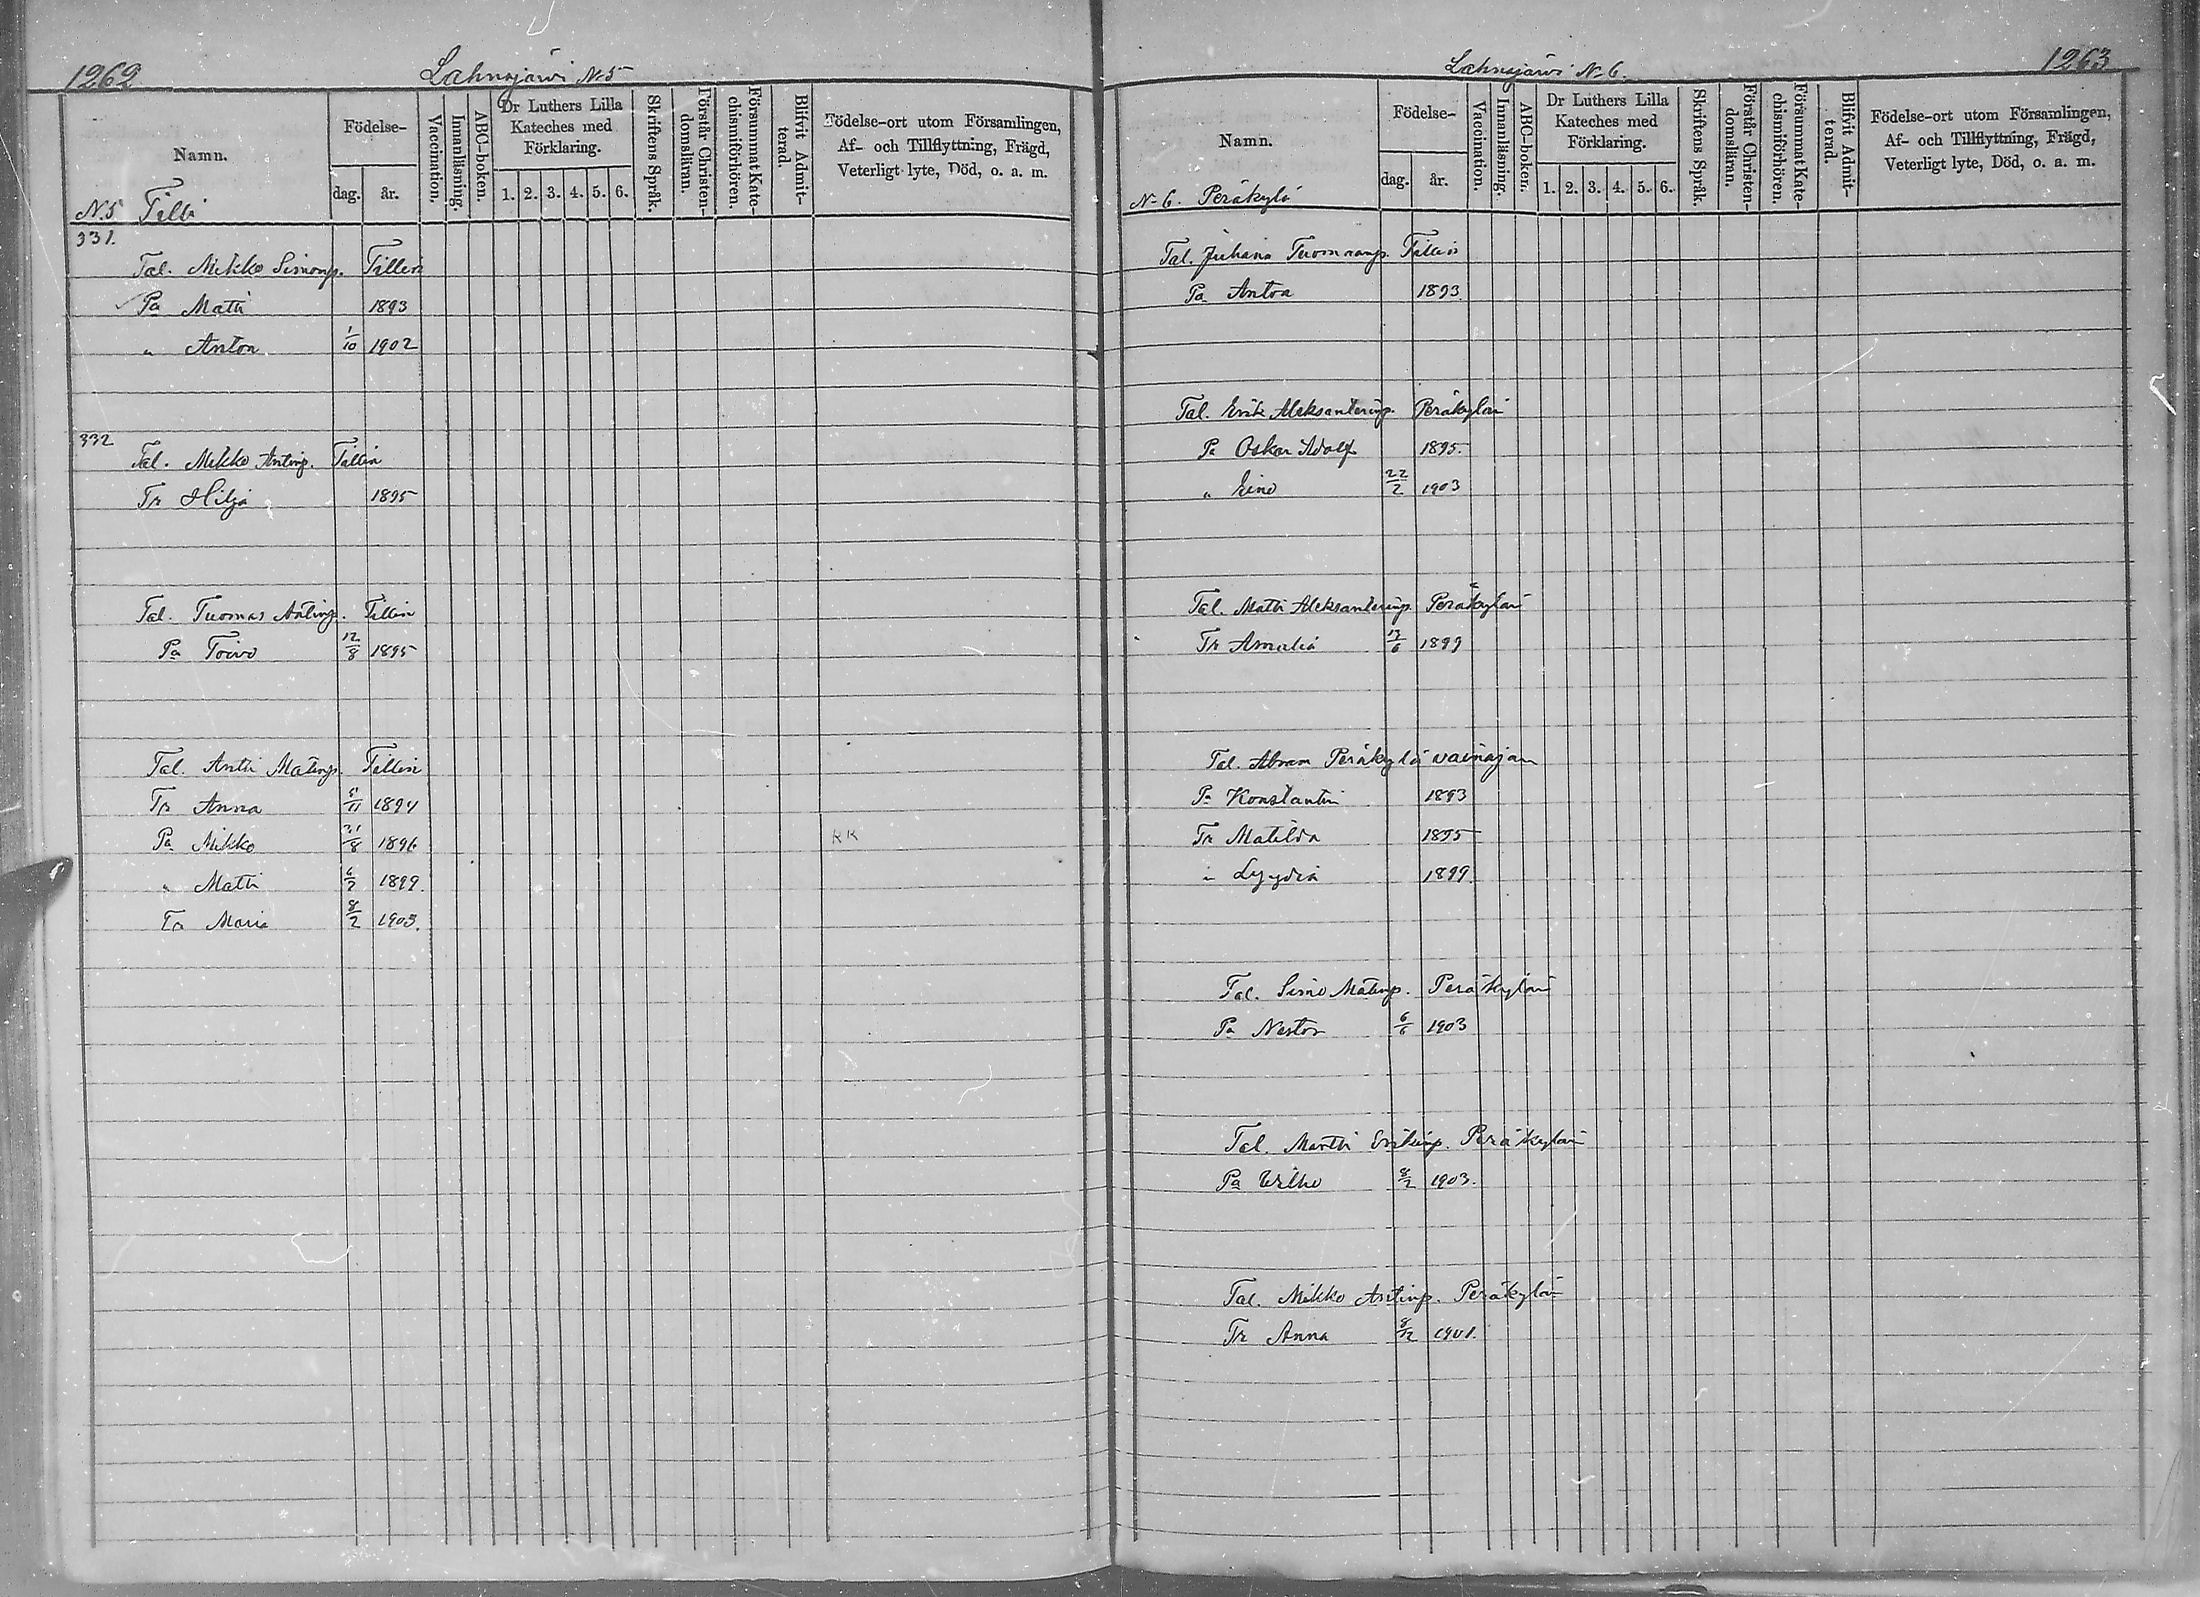 1262
Lahnajärvi N:5
Namn.
Födelse-
dag.
år.
Vaccination.
Innanläsning.
ABC-boken.
Dr Luthers Lilla
Kateches med
Förklaring.
1. 2. 3. 4. 5. 6.
Skriftens Språk.
Förstår Christen-
domsläran.
Försummat Kate-
chismiförhören.
Blifvit Admit-
terad.
Födelse-ort utom Församlingen,
Af- och Tillflyttning, Frägd,
Veterligt lyte, Död, o. a. m.
N:5 Tilli
331.
Tal. Mikko Simonp. Tillin
Pa Matti 1893
" Anton 1/10 1902
332
Tal. Mikko Antinp. Tillin
Tr Hilja 1895
Tal. Tuomas Antinp. Tillin
Pa Toivo 12/8 1895
Tal. Antti Matinp. Tillin
Tr Anna 5/11 1894
Pa Mikko 31/8 1896 KK
" Matti 6/2 1899.
Tr Maria 8/2 1903.
1263
Lahnajärvi N:6.
Namn.
Födelse-
dag.
år.
Vaccination.
Innanläsning.
ABC-boken.
Dr Luthers Lilla
Kateches med
Förklaring.
1. 2. 3. 4. 5. 6.
Skriftens Språk.
Förstår Christen-
domsläran.
Försummat Kate-
chismiförhören.
Blifvit Admit-
terad.
Födelse-ort utom Församlingen,
Af- och Tillflyttning, Frägd,
Veterligt lyte, Död, o. a. m.
N:6. Peräkylä
Tal. Juhana Tuomaanp. Tillin
Pa Anton 1893
Tal. Erik Aleksanterinp. Peräkylän
Pa Oskar Adolf 1895.
" Eino 22/2 1903
Tal. Matti Aleksanterinp. Peräkylän
Tr Amalia 1899
Tal. Abram Peräkylä vainajan
Pa Konstantin 1893
Tr Matilda 1895
" Lyydia 1899.
Tal. Simo Matinp. Peräkylän
Pa Nestor 6/6 1903
Tal. Martti Erikinp. Peräkylän
Pa Wilho 8/2 1903.
Tal. Mikko Antinp. Peräkylän
Tr Anna 8/12 1901.